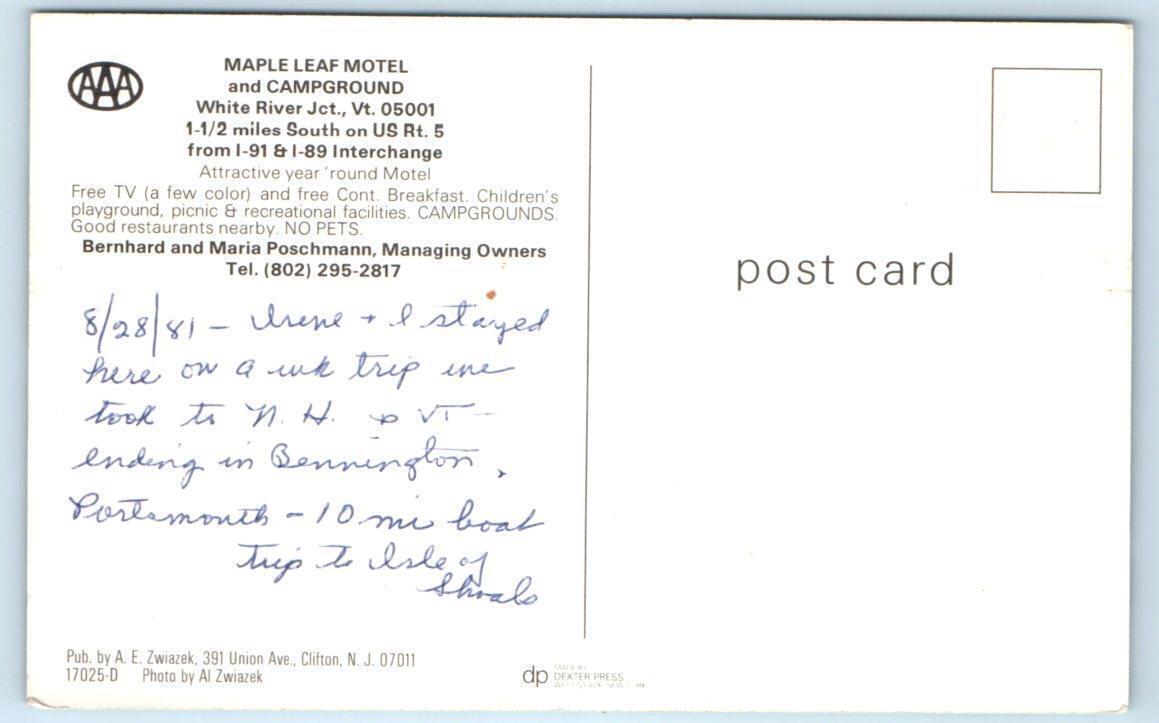 AAA
MAPLE LEAF MOTEL
and CAMPGROUND
White River Jct., Vt. 05001
1-1/2 miles South on US Rt. 5
from I-91 & I-89 Interchange
Attractive year 'round Motel
Free TV (a few color) and free Cont. Breakfast. Children's
playground, picnic & recreational facilities. CAMPGROUNDS.
Good restaurants nearby. NO PETS.
Bernhard and Maria Poschmann, Managing Owners
Tel. (802) 295-2817
8/28/81 - Irene + I stayed
here on a wk trip we
took to N. H. & VT -
ending in Bennington,
Portsmouth - 10 mi boat
trip to Isle of
Shoals
Pub. by A. E. Zwiazek, 391 Union Ave., Clifton, N. J. 07011
17025-D Photo by Al Zwiazek
post card
dp
MADE BY
DEXTER PRESS
WEST NYACK, NEW YORK